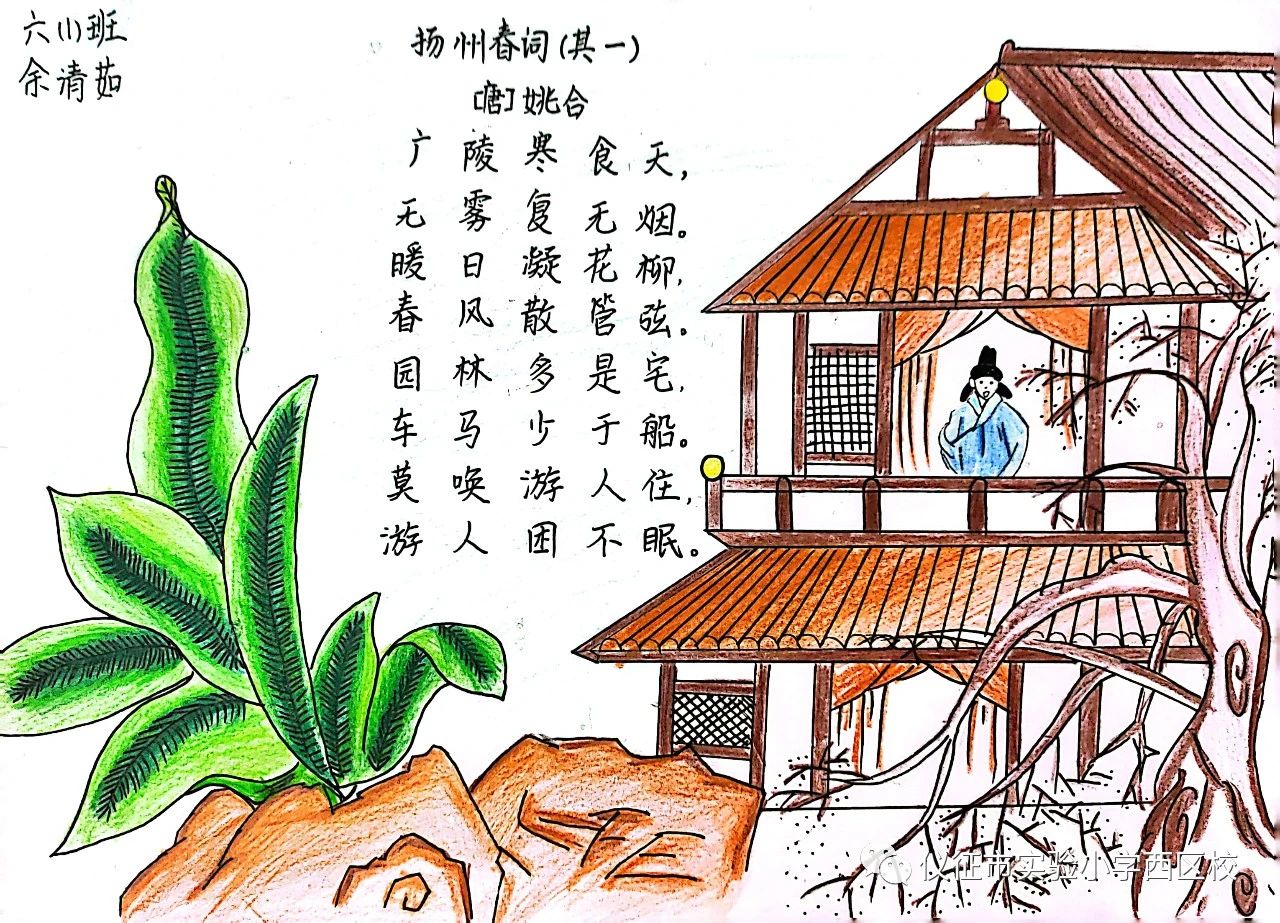 六(1)班
余清茹
扬州春词(其一)
[唐]姚合
广陵寒食天,
无雾复无烟。
暖日凝花柳,
春风散管弦。
园林多是宅,
车马少于船。
莫唤游人住,
游人困不眠。
仪征市实验小学西区校